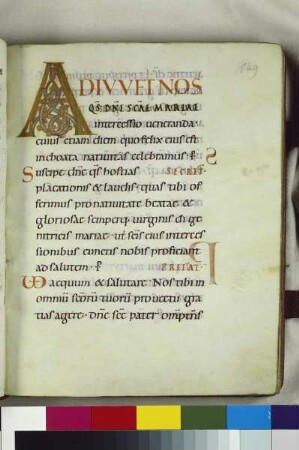 149
ADIUVET NOS
QS DNE SCAE MARIAE
intercessio ueneranda
cuius etiam diem quo felix eius est
inchoata natiuitas celebramus
SECRET
Suscipe dne qs hostias
placationis & laudis quas tibi of
ferimus pro natiuitate beatae &
gloriosae semperq uirginis di ge
nitricis mariae ut scis eius interces
sionibus cunctis nobis proficiant
ad salutem
PREFAT
aequum & salutare Nos tibi in
omniu scoru tuoru prouectu gra
tias agere dne sce pater omptns